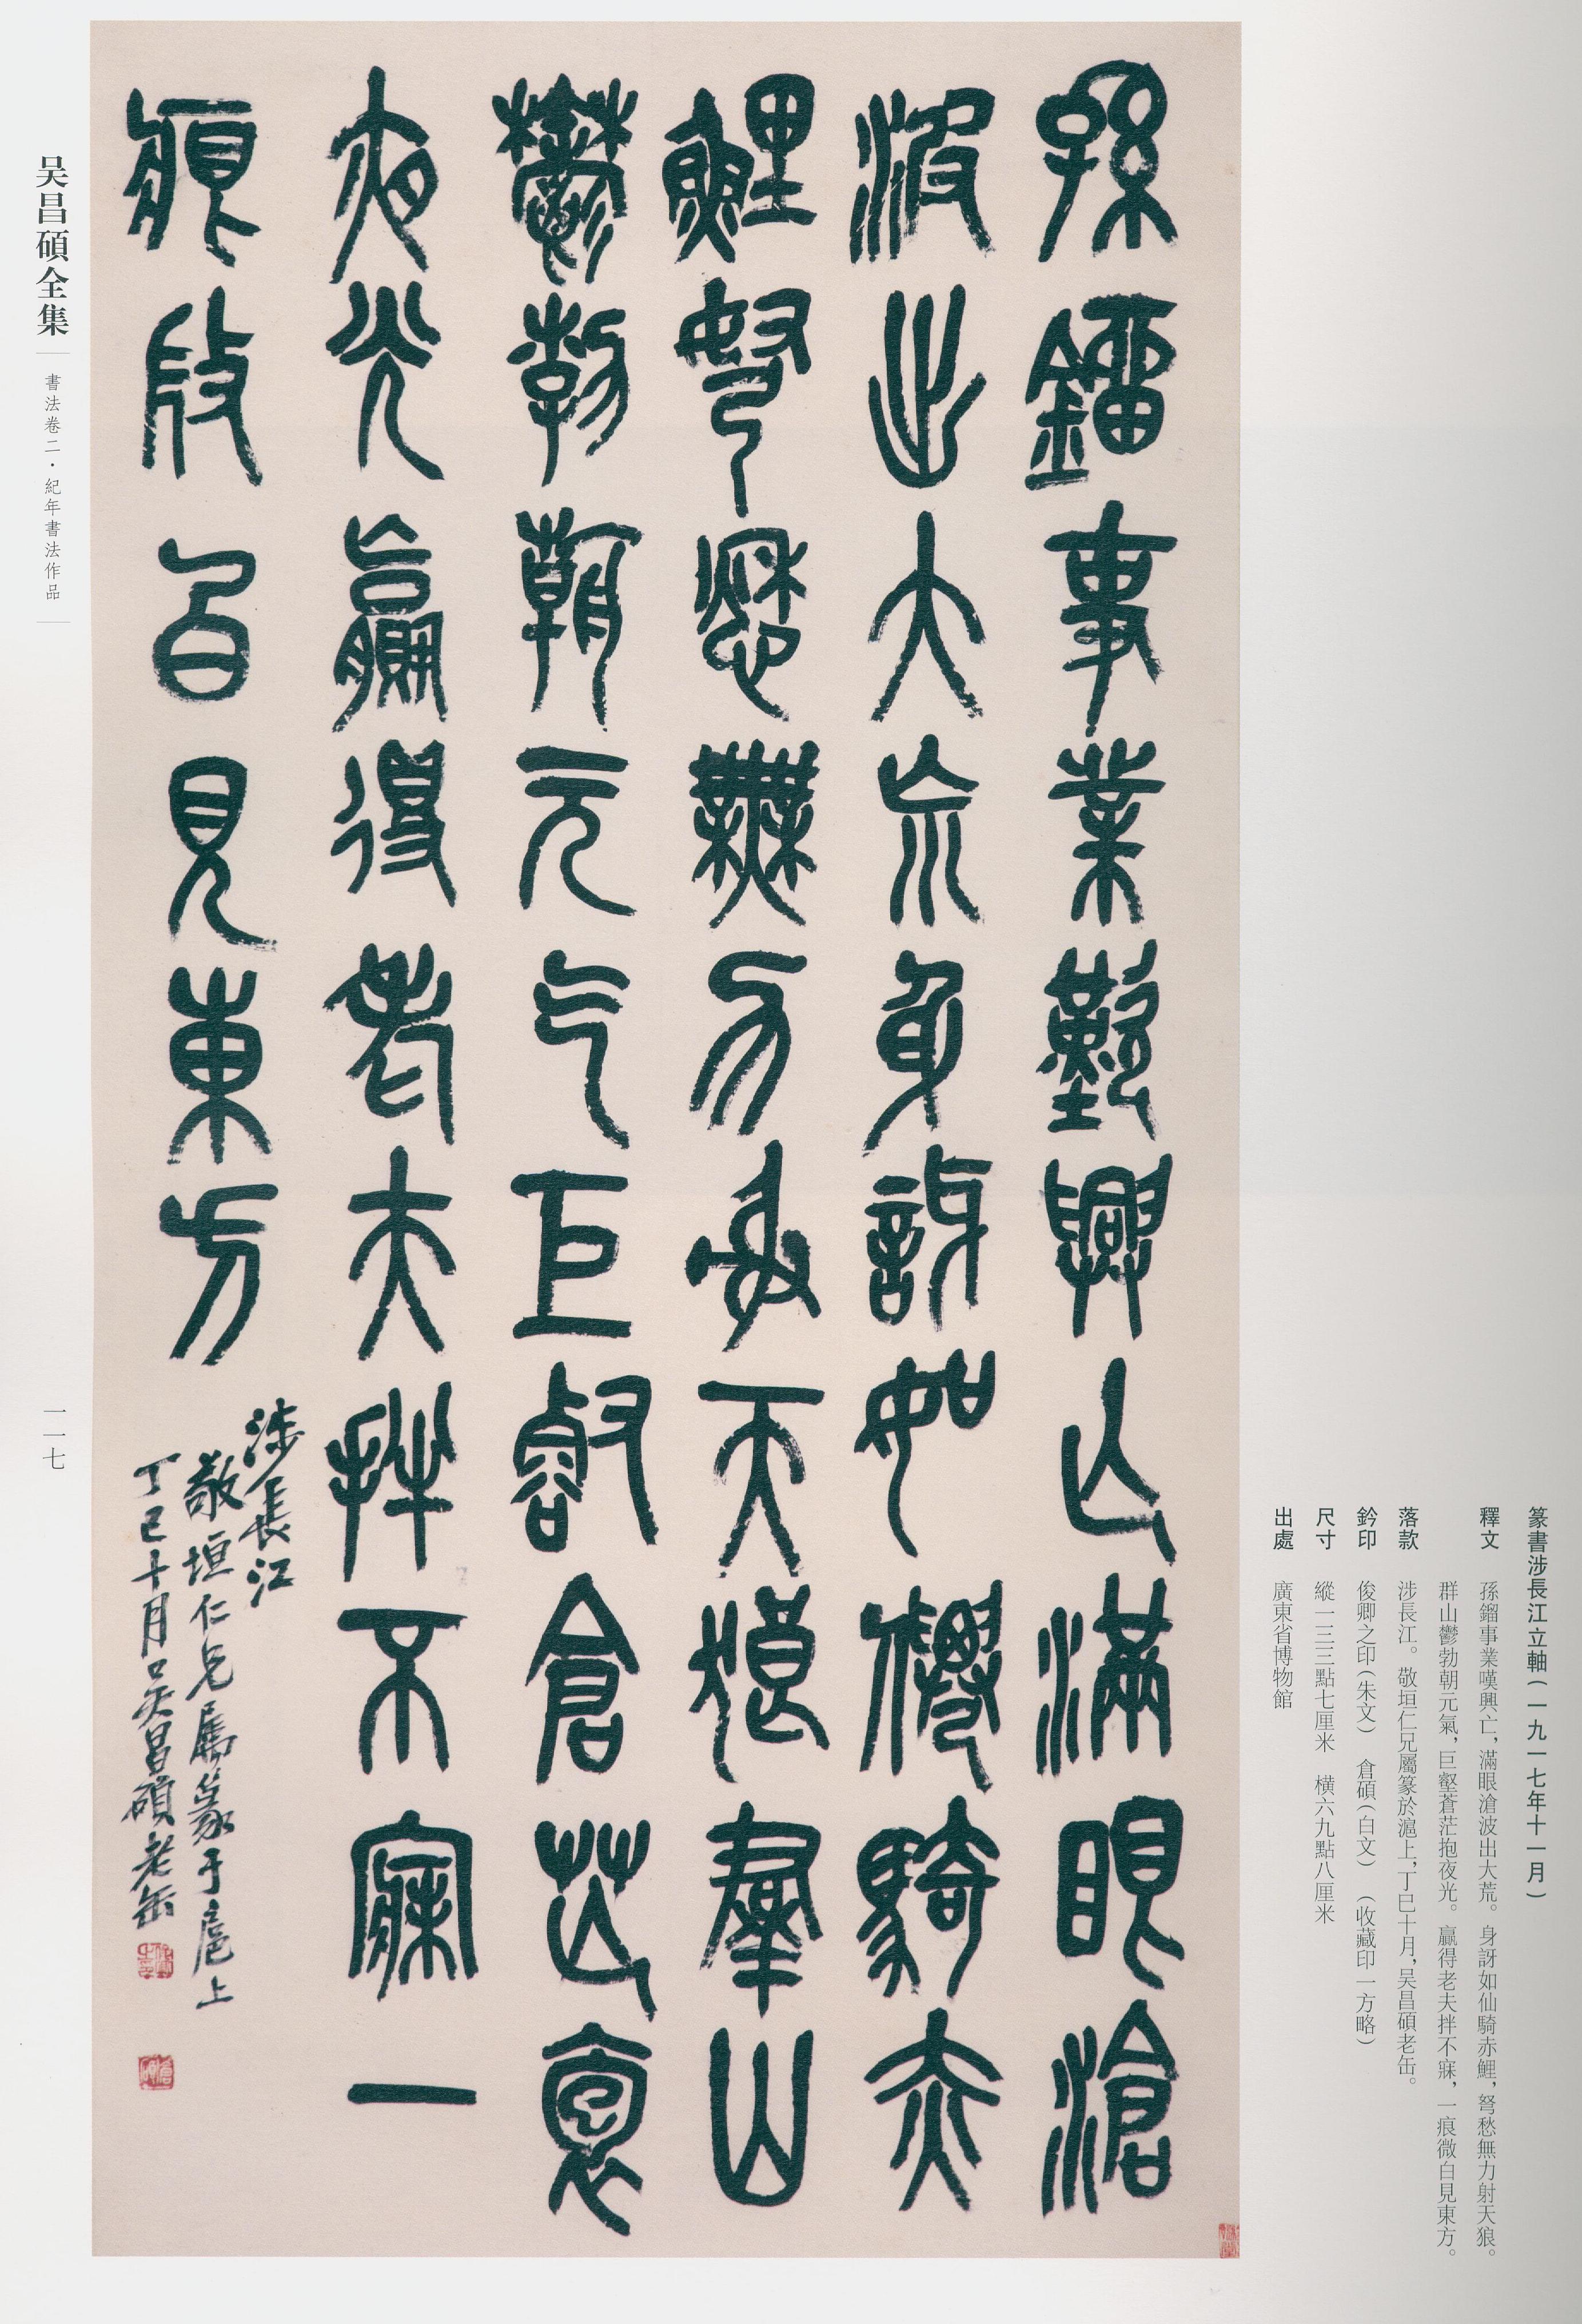 孫鎦事業歎興亡滿眼滄
波出大㐬身訝如僊騎赤
鯉弩愁無力射天狼羣山
鬱勃朝元气巨壑倉茫裒
夜光贏得老夫拌不寐一
痕𢼸白見東方
涉長江
敬垣仁兄属篆于扈上
丁巳十月吴昌碩老缶
篆書涉長江立軸(一九一七年十一月)
釋文 孫鎦事業嘆興亡,滿眼滄波出大荒。身訝如仙騎赤鯉,弩愁無力射天狼。
群山鬱勃朝元氣,巨壑蒼茫抱夜光。贏得老夫拌不寐,一痕微白見東方。
落款 涉長江。敬垣仁兄屬篆於滬上,丁巳十月,吴昌碩老缶。
鈐印 俊卿之印(朱文) 倉碩(白文) (收藏印一方略)
尺寸 縱一三三點七厘米 横六九點八厘米
出處 廣東省博物館
吴昌碩全集 書法卷二·紀年書法作品
一一七